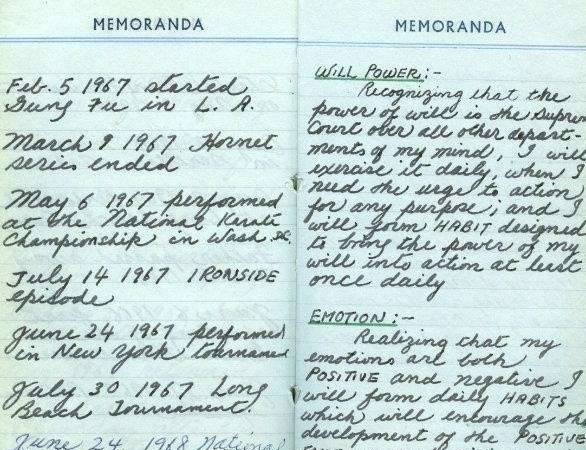 MEMORANDA
Feb. 5 1967 started
Gung Fu in L. A.
March 9 1967 Hornet
series ended
May 6 1967 performed
at the National Karate
Championship in Wash DC.
July 14 1967 IRONSIDE
episode
June 24 1967 performed
in New York tournament
July 30 1967 Long
Beach Tournament.
June 24 1968 National
MEMORANDA
WILL POWER:-
Recognizing that the
power of will is the Suprem
Court over all other depart-
ments of my mind, I will
exercise it daily, when I
need the urge to action
for any purpose; and I
will form HABIT designed
to bring the power of my
will into action at least
once daily
EMOTION:-
Realizing that my
emotions are both
POSITIVE and negative I
will form daily HABITS
which will encourage the
development of the POSITIVE